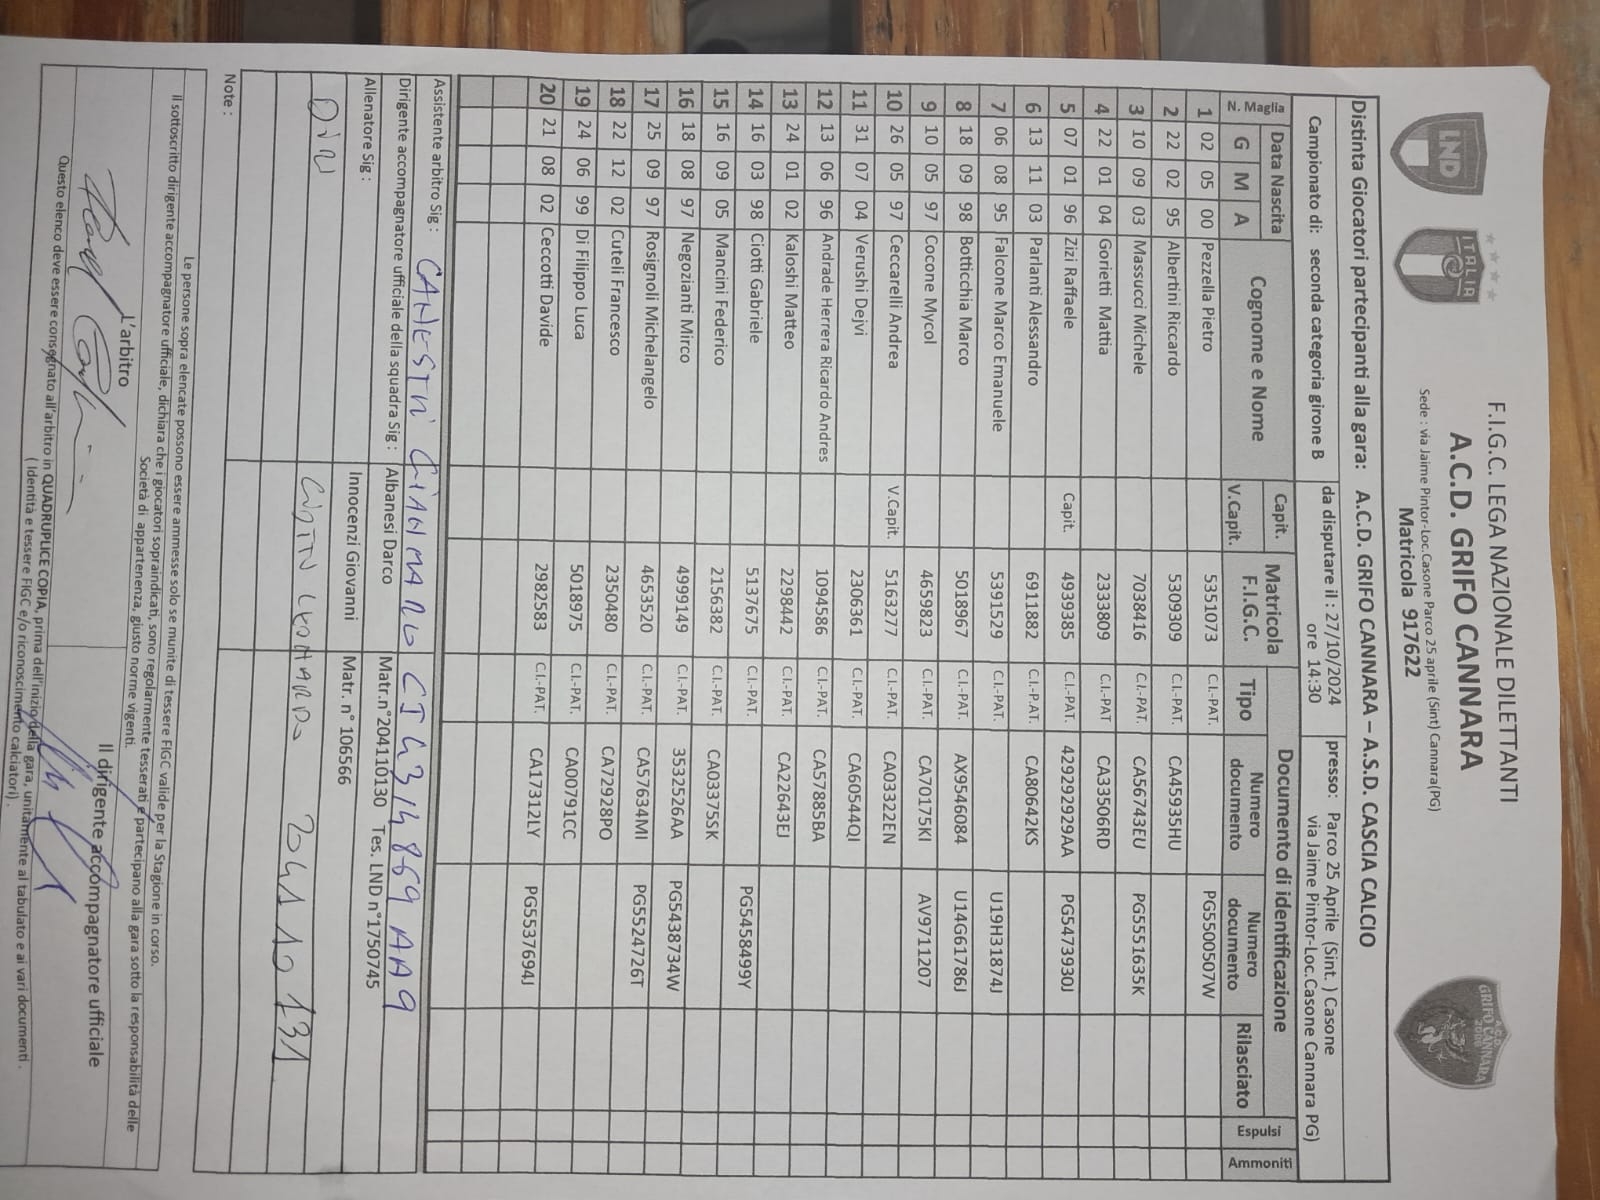 F.I.G.C. LEGA NAZIONALE DILETTANTI
A.C.D. GRIFO CANNARA
Sede : via Jaime Pintor-Loc.Casone Parco 25 aprile (Sint) Cannara(PG)
Matricola 917622
LND
ITALIA
A.C.D.
GRIFO CANNARA
2008
Distinta Giocatori partecipanti alla gara: A.C.D. GRIFO CANNARA – A.S.D. CASCIA CALCIO
Campionato di: seconda categoria girone B da disputare il : 27/10/2024 presso: Parco 25 Aprile (Sint.) Casone
ore 14:30 via Jaime Pintor-Loc.Casone Cannara PG)
N. Maglia Data Nascita Cognome e Nome Capit. Matricola Documento di identificazione Espulsi Ammoniti
G M A V.Capit. F.I.G.C. Tipo Numero documento Numero documento Rilasciato
1 02 05 00 Pezzella Pietro 5351073 C.I.-PAT. PG5500507W
2 22 02 95 Albertini Riccardo 5309309 C.I.-PAT. CA45935HU
3 10 09 03 Massucci Michele 7038416 C.I.-PAT. CA56743EU PG5551635K
4 22 01 04 Gorietti Mattia 2333809 C.I.-PAT CA33506RD
5 07 01 96 Zizi Raffaele Capit. 4939385 C.I.-PAT. 42992929AA PG5473930J
6 13 11 03 Parlanti Alessandro 6911882 C.I.-P.AT. CA80642KS
7 06 08 95 Falcone Marco Emanuele 5391529 C.I.-PAT. U19H31874J
8 18 09 98 Botticchia Marco 5018967 C.I.-PAT. AX9546084 U14G61786J
9 10 05 97 Cocone Mycol 4659823 C.I.-PAT. CA70175KI AV9711207
10 26 05 97 Ceccarelli Andrea V.Capit. 5163277 C.I.-PAT. CA03322EN
11 31 07 04 Verushi Dejvi 2306361 C.I.-PAT. CA60544QI
12 13 06 96 Andrade Herrera Ricardo Andres 1094586 C.I.-PAT. CA57885BA
13 24 01 02 Kaloshi Matteo 2298442 C.I.-PAT. CA22643EJ
14 16 03 98 Ciotti Gabriele 5137675 C.I.-PAT. PG5458499Y
15 16 09 05 Mancini Federico 2156382 C.I.-PAT. CA03375SK
16 18 08 97 Negozianti Mirco 4999149 C.I.-PAT. 3532526AA PG5438734W
17 25 09 97 Rosignoli Michelangelo 4653520 C.I.-PAT. CA57634MI PG5524726T
18 22 12 02 Cuteli Francesco 2350480 C.I.-PAT. CA72928PO
19 24 06 99 Di Filippo Luca 5018975 C.I.-PAT. CA00791CC
20 21 08 02 Ceccotti Davide 2982583 C.I.-PAT. CA17312LY PG5537694J
Assistente arbitro Sig : CANESTRI GIANMARIO CI 4314869AA9
Dirigente accompagnatore ufficiale della squadra Sig : Albanesi Darco Matr.n°204110130 Tes. LND n°1750745
Allenatore Sig : Innocenzi Giovanni Matr. n° 106566
DIR 204110131
Note :
Le persone sopra elencate possono essere ammesse solo se munite di tessere FIGC valide per la Stagione in corso.
Il sottoscritto dirigente accompagnatore ufficiale, dichiara che i giocatori sopraindicati, sono regolarmente tesserati e partecipano alla gara sotto la responsabilità delle
Società di appartenenza, giusto norme vigenti.
L'arbitro Il dirigente accompagnatore ufficiale
Questo elenco deve essere consegnato all'arbitro in QUADRUPLICE COPIA, prima dell'inizio della gara, unitamente al tabulato e ai vari documenti .
( Identità e tessere FIGC e/o riconoscimento calciatori) .